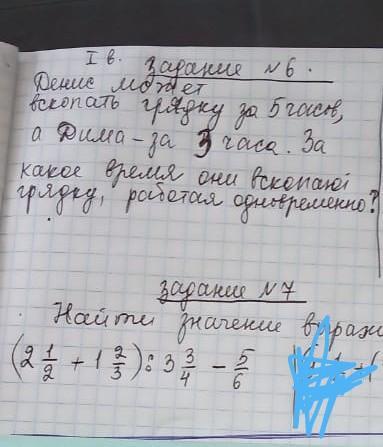 I в. Задание №6.
Денис может
вскопать грядку за 5 часов,
а Дима - за 3 часа. За
какое время они вскопают
грядку, работая одновременно?
Задание №7
Найти значение выраж
(2 1/2 + 1 2/3) : 3 3/4 - 5/6